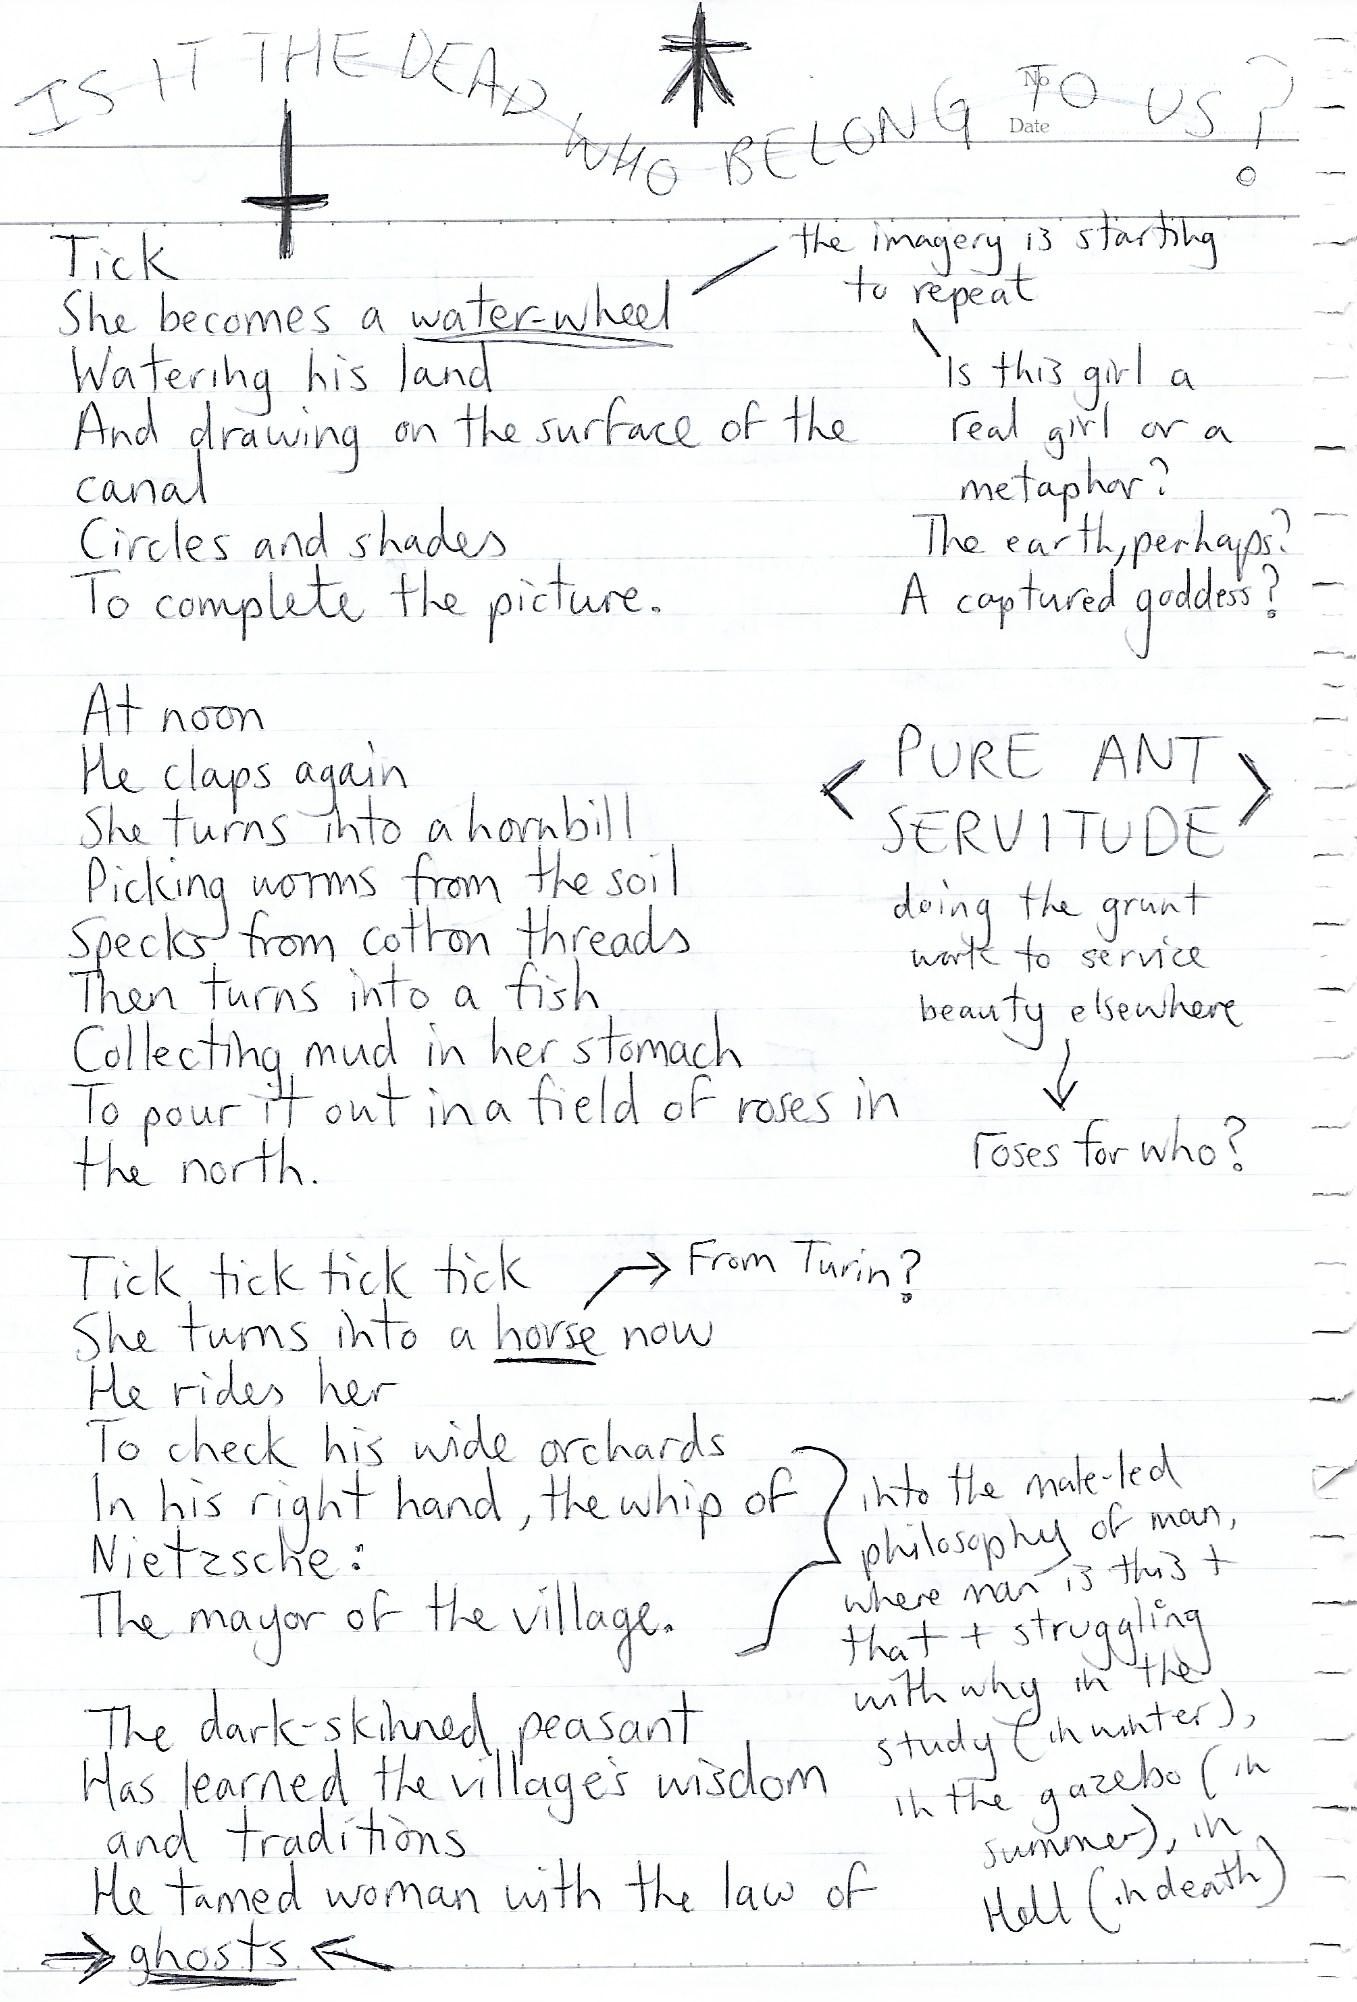 IS IT THE DEAD WHO BELONG TO US?
No
Date
Tick
She becomes a water-wheel
Watering his land
And drawing on the surface of the
canal
Circles and shades
To complete the picture.
the imagery is starting
to repeat
Is this girl a
real girl or a
metaphor?
The earth, perhaps?
A captured goddess?
At noon
He claps again
She turns into a hornbill
Picking worms from the soil
Specks from cotton threads
Then turns into a fish
Collecting mud in her stomach
To pour it out in a field of roses in
the north.
< PURE ANT >
SERVITUDE
doing the grunt
work to service
beauty elsewhere
roses for who?
Tick tick tick tick
She turns into a horse now
He rides her
To check his wide orchards
In his right hand, the whip of
Nietzsche:
The mayor of the village.
From Turin?
into the male-led
philosophy of man,
where man is this +
that + struggling
with why in the
study (in winter),
in the gazebo (in
summer), in
Hell (in death)
The dark-skinned peasant
Has learned the village's wisdom
and traditions
He tamed woman with the law of
→ ghosts ←